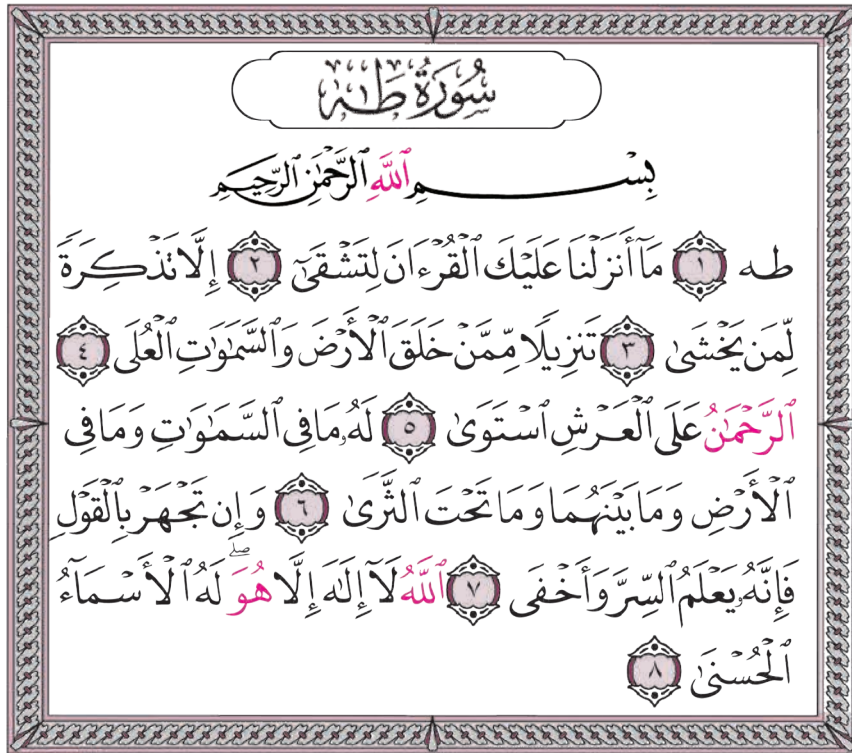 سُورَةُ طه
بِسْمِ ٱللَّهِ ٱلرَّحْمَٰنِ ٱلرَّحِيمِ
طه ١ مَآ أَنزَلْنَا عَلَيْكَ ٱلْقُرْءَانَ لِتَشْقَىٰٓ ٢ إِلَّا تَذْكِرَةً
لِّمَن يَخْشَىٰ ٣ تَنزِيلًا مِّمَّنْ خَلَقَ ٱلْأَرْضَ وَٱلسَّمَٰوَٰتِ ٱلْعُلَى ٤
ٱلرَّحْمَٰنُ عَلَى ٱلْعَرْشِ ٱسْتَوَىٰ ٥ لَهُۥ مَا فِى ٱلسَّمَٰوَٰتِ وَمَا فِى
ٱلْأَرْضِ وَمَا بَيْنَهُمَا وَمَا تَحْتَ ٱلثَّرَىٰ ٦ وَإِن تَجْهَرْ بِٱلْقَوْلِ
فَإِنَّهُۥ يَعْلَمُ ٱلسِّرَّ وَأَخْفَى ٧ ٱللَّهُ لَآ إِلَٰهَ إِلَّا هُوَ ۖ لَهُ ٱلْأَسْمَآءُ
ٱلْحُسْنَىٰ ٨